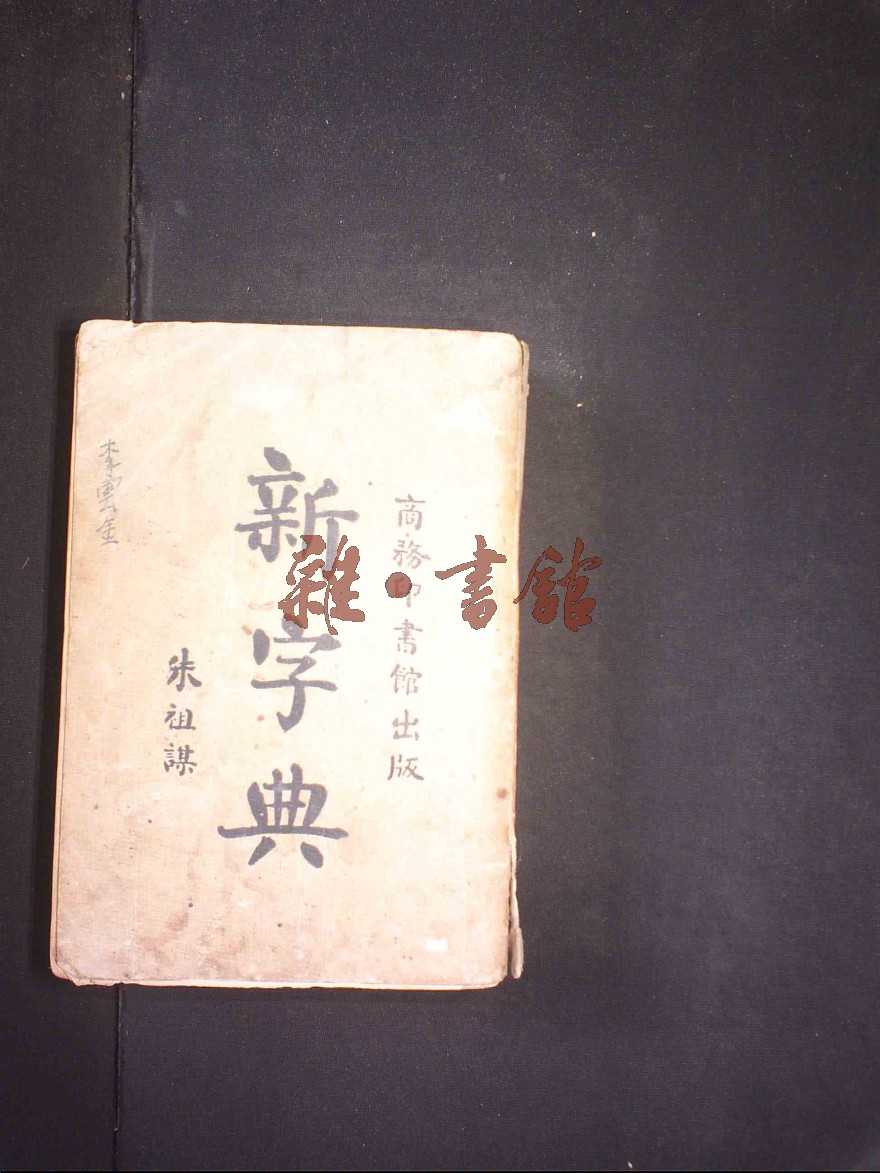 商務印書館出版
新字典
朱祖謀
李雲金
雜·書館